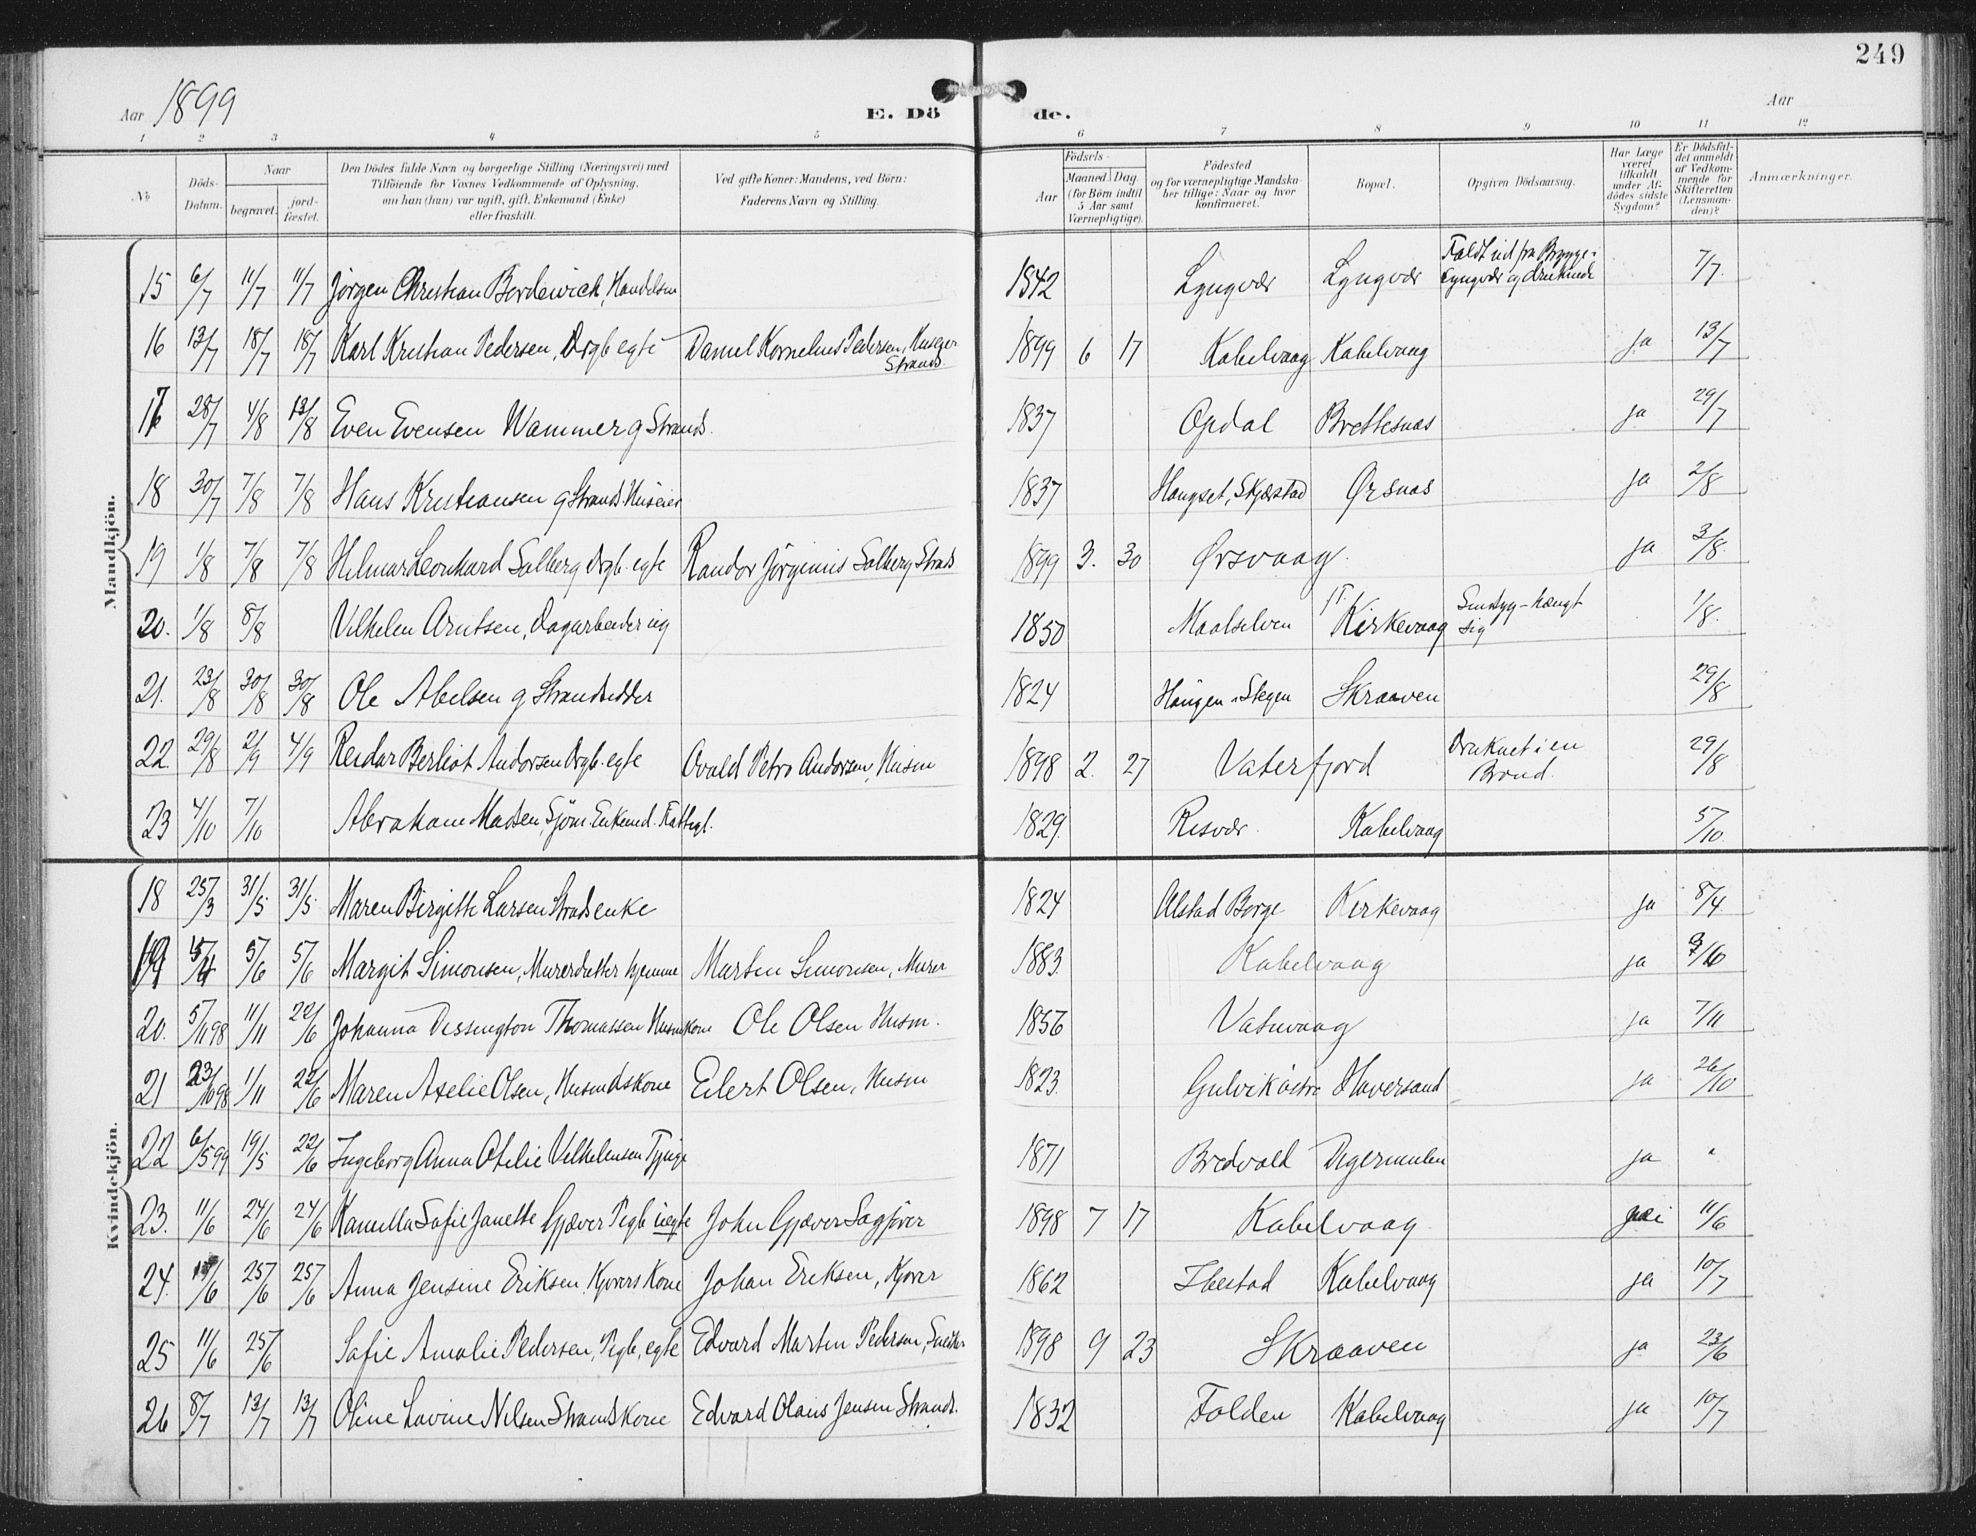 249
Aar 1899
E. Döde.
Aar
1 2 3 4 5 6 7 8 9 10 11 12
No
Döds-Datum.
Naar
begravet.
jord-fæstet.
Den Dödes fulde Navn og borgerlige Stilling (Næringsvei) med
Tilföiende for Voxnes Vedkommende af Oplysning,
om han (hun) var ugift, gift, Enkemand (Enke)
eller fraskilt.
Ved gifte Koner: Mandens, ved Börn:
Faderens Navn og Stilling.
Födsels-
Aar
Maaned Dag
(for Börn indtil
5 Aar samt
Værnepligtige).
Födested
og for værnepligtige Mandska-
ber tillige: Naar og hvor
konfirmeret.
Bopæl.
Opgiven Dödsaarsag.
Har Læge
været
tilkaldt
under Af-
dödes sidste
Sygdom?
Er Dödsfal-
det anmeldt
af Vedkom-
mende for
Skifteretten
(Lensman-
den)?
Anmærkninger.
Mandkjön.
15 6/7 11/7 11/7 Jörgen Christian Bordewick, Handelsm 1842 Lyngvær Lyngvær Faldt ud fra Brygge i Lyngvær og druknede 7/7
16 13/7 18/7 18/7 Karl Kristian Pedersen, Drgb egte Daniel Kornelius Pedersen, Huseier Strands. 1899 6 17 Kabelvaag Kabelvaag ja 13/7
17 28/7 4/8 13/8 Even Evensen Wammer g Strands. 1837 Opdal Brettesnæs ja 29/7
18 30/7 7/8 7/8 Hans Kristiansen g Strands. Huseier 1837 Haugset, Skjæstad Örsnæs ja 2/8
19 1/8 7/8 7/8 Hilmar Leonhard Solberg Drgb. egte Randor Jörginus Solberg Strads 1899 3. 30 Örsvaag ja 3/8
20. 1/8 8/8 Vilhelm Arntsen, Dagarbeider ug 1850 Maalselven Kirkevaag Sindsyg - hængt sig 1/8
21. 23/8 30/8 30/8 Ole Abelsen g Strandsidder 1824 Haugen i Stegen Skraaven 29/8
22. 29/8 2/9 4/9 Reidar Berliot Andorsen Drgb. egte Ovald Petro Andorsen, Husm 1898 2. 27 Vaterfjord Druknet i en Brönd. 29/8
23 4/10 7/10 Abraham Madsen, Sjöm. Enkemd. Fattigl. 1829. Risvær. Kabelvaag 5/10
Kvindekjön.
18 25/3 31/5 31/5 Maren Birgitte Larsen Strads enke 1824 Alstad Borge Kirkevaag ja 8/4
19 5/6 5/6 Margit Simonsen, Murerdatter hjemme Martin Simonsen, Murer 1883. Kabelvaag ja
20. 5/11 98 11/11 22/6 Johanna Dessington Thomassen Husmkone Ole Olsen Husm. 1856 Vatnvaag ja 7/11
21 23/10 98 1/11 22/6 Maren Axelie Olsen, Husmdskone Eilert Olsen, Husm 1823. Gulvik östre Haversand ja 26/10
22 6/5 99 19/5 22/6 Ingeborg Anna Otelie Vilhelmsen Tjpige 1871 Bredvold Digermulen ja "
23. 11/6 24/6 24/6 Kamilla Sofie Janette Gjæver Pigb uegte John Gjæver Sagförer 1898 7 17 Kabelvaag nei 11/6
24. 25/6 25/6 Anna Jensine Eriksen, Kjörers Kone Johan Eriksen, Kjörer 1862 Ibestad Kabelvaag ja 10/7
25 11/6 25/6 Sofie Amalie Pedersen, Pigb, egte Edvard Martin Pedersen, Snedker 1898 9 23 Skraaven ja 23/6
26 8/7 13/7 13/7 Oline Lovine Nilsen Strandskone Edvard Olaus Jensen Strands. 1832 Folden Kabelvaag ja 10/7